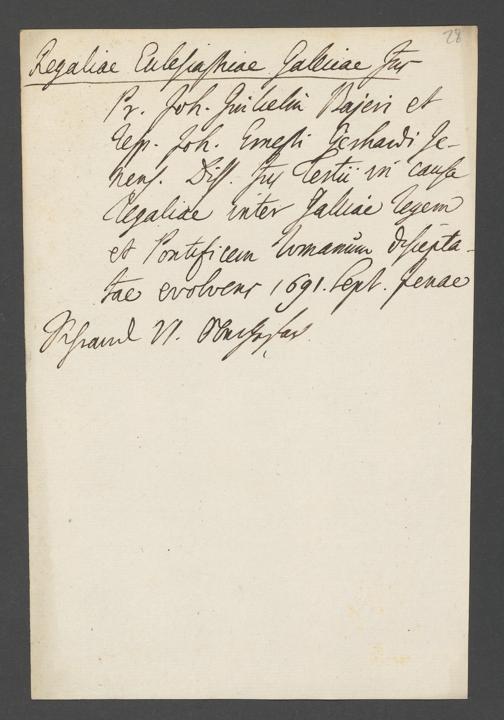 28
Regaliae Eclesiasticae Galliae Jus
Pr. Joh. Guilielm Bajeri et
resp. Joh. Ernesti Gerhardi Je-
nens. Diss. Jus tertii in causa
Regaliae inter Galliae Regem
et Pontificem Romanum discepta-
tae evolvens 1691. Sept. Jenae
VI.